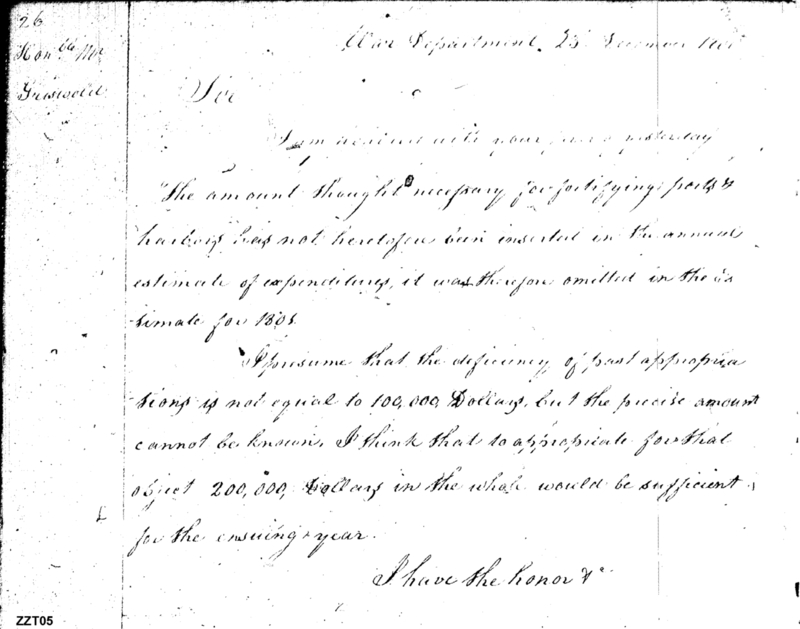 26
Honble Mr
Griswold
War Department, 23 December 1800
Sir
I am honored with your favor yesterday
The amount thought necessary for fortifying ports &
harbors has not heretofore been inserted in the annual
estimate of expenditures, it was therefore omitted in the es
timate for 1801.
I presume that the deficiency of past appropria
tions is not equal to 100,000 Dollars, but the precise amount
cannot be known. I think that to appropriate for that
object 200,000, Dollars in the whole would be sufficient
for the ensuing year.
I have the honor &c
ZZT05